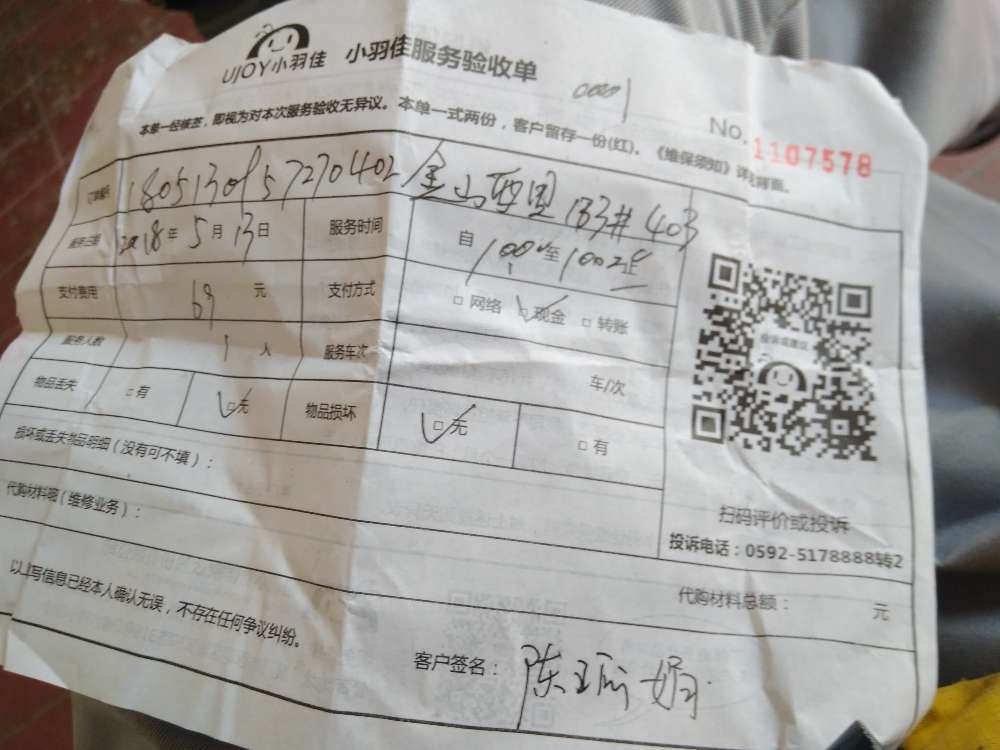 UJOY小羽佳 小羽佳服务验收单
0001
No. 1107578
本单一经核签，即视为对本次服务验收无异议。本单一式两份，客户留存一份(红)。《维保须知》详见背面。
订单编号 金山西里 403
服务日期 2018年5月13日 服务时间 自 至 止
支付费用 69 元 支付方式 □ 网络 ☑ 现金 □ 转账
服务人数 1 人 服务车次 车/次
物品丢失 □ 有 ☑ 无 物品损坏 ☑ 无 □ 有
损坏或丢失物品明细（没有可不填）：
代购材料明细（维修业务）：
投诉或建议
扫码评价或投诉
投诉电话：0592-5178888转2
代购材料总额： 元
以上填写信息已经本人确认无误，不存在任何争议纠纷。
客户签名： 陈 娟